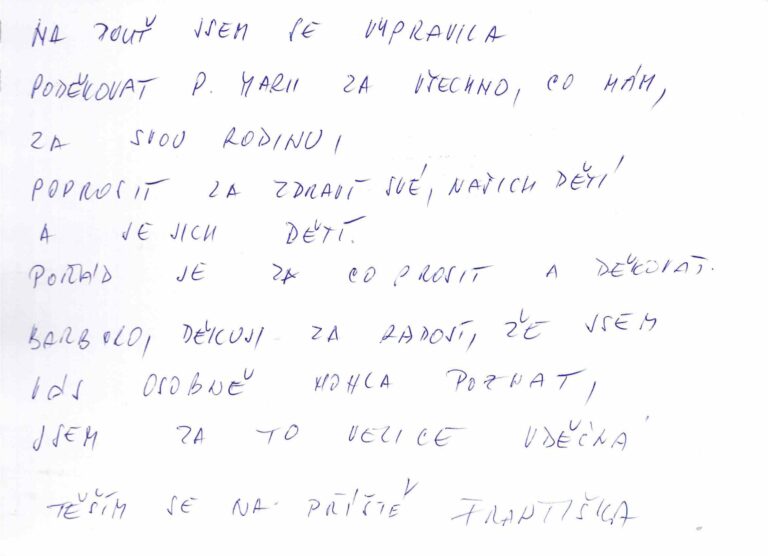 NA POUŤ JSEM SE VYPRAVILA
PODĚKOVAT P. MARII ZA VŠECHNO, CO MÁM,
ZA SVOU RODINU,
POPROSIT ZA ZDRAVÍ SVÉ, NAŠICH DĚTÍ
A JEJICH DĚTÍ.
POŘÁD JE ZA CO PROSIT A DĚKOVAT.
BARBORO, DĚKUJI ZA RADOST, ŽE JSEM
VÁS OSOBNĚ MOHLA POZNAT,
JSEM ZA TO VELICE VDĚČNÁ
TĚŠÍM SE NA PŘÍŠTĚ FRANTIŠKA